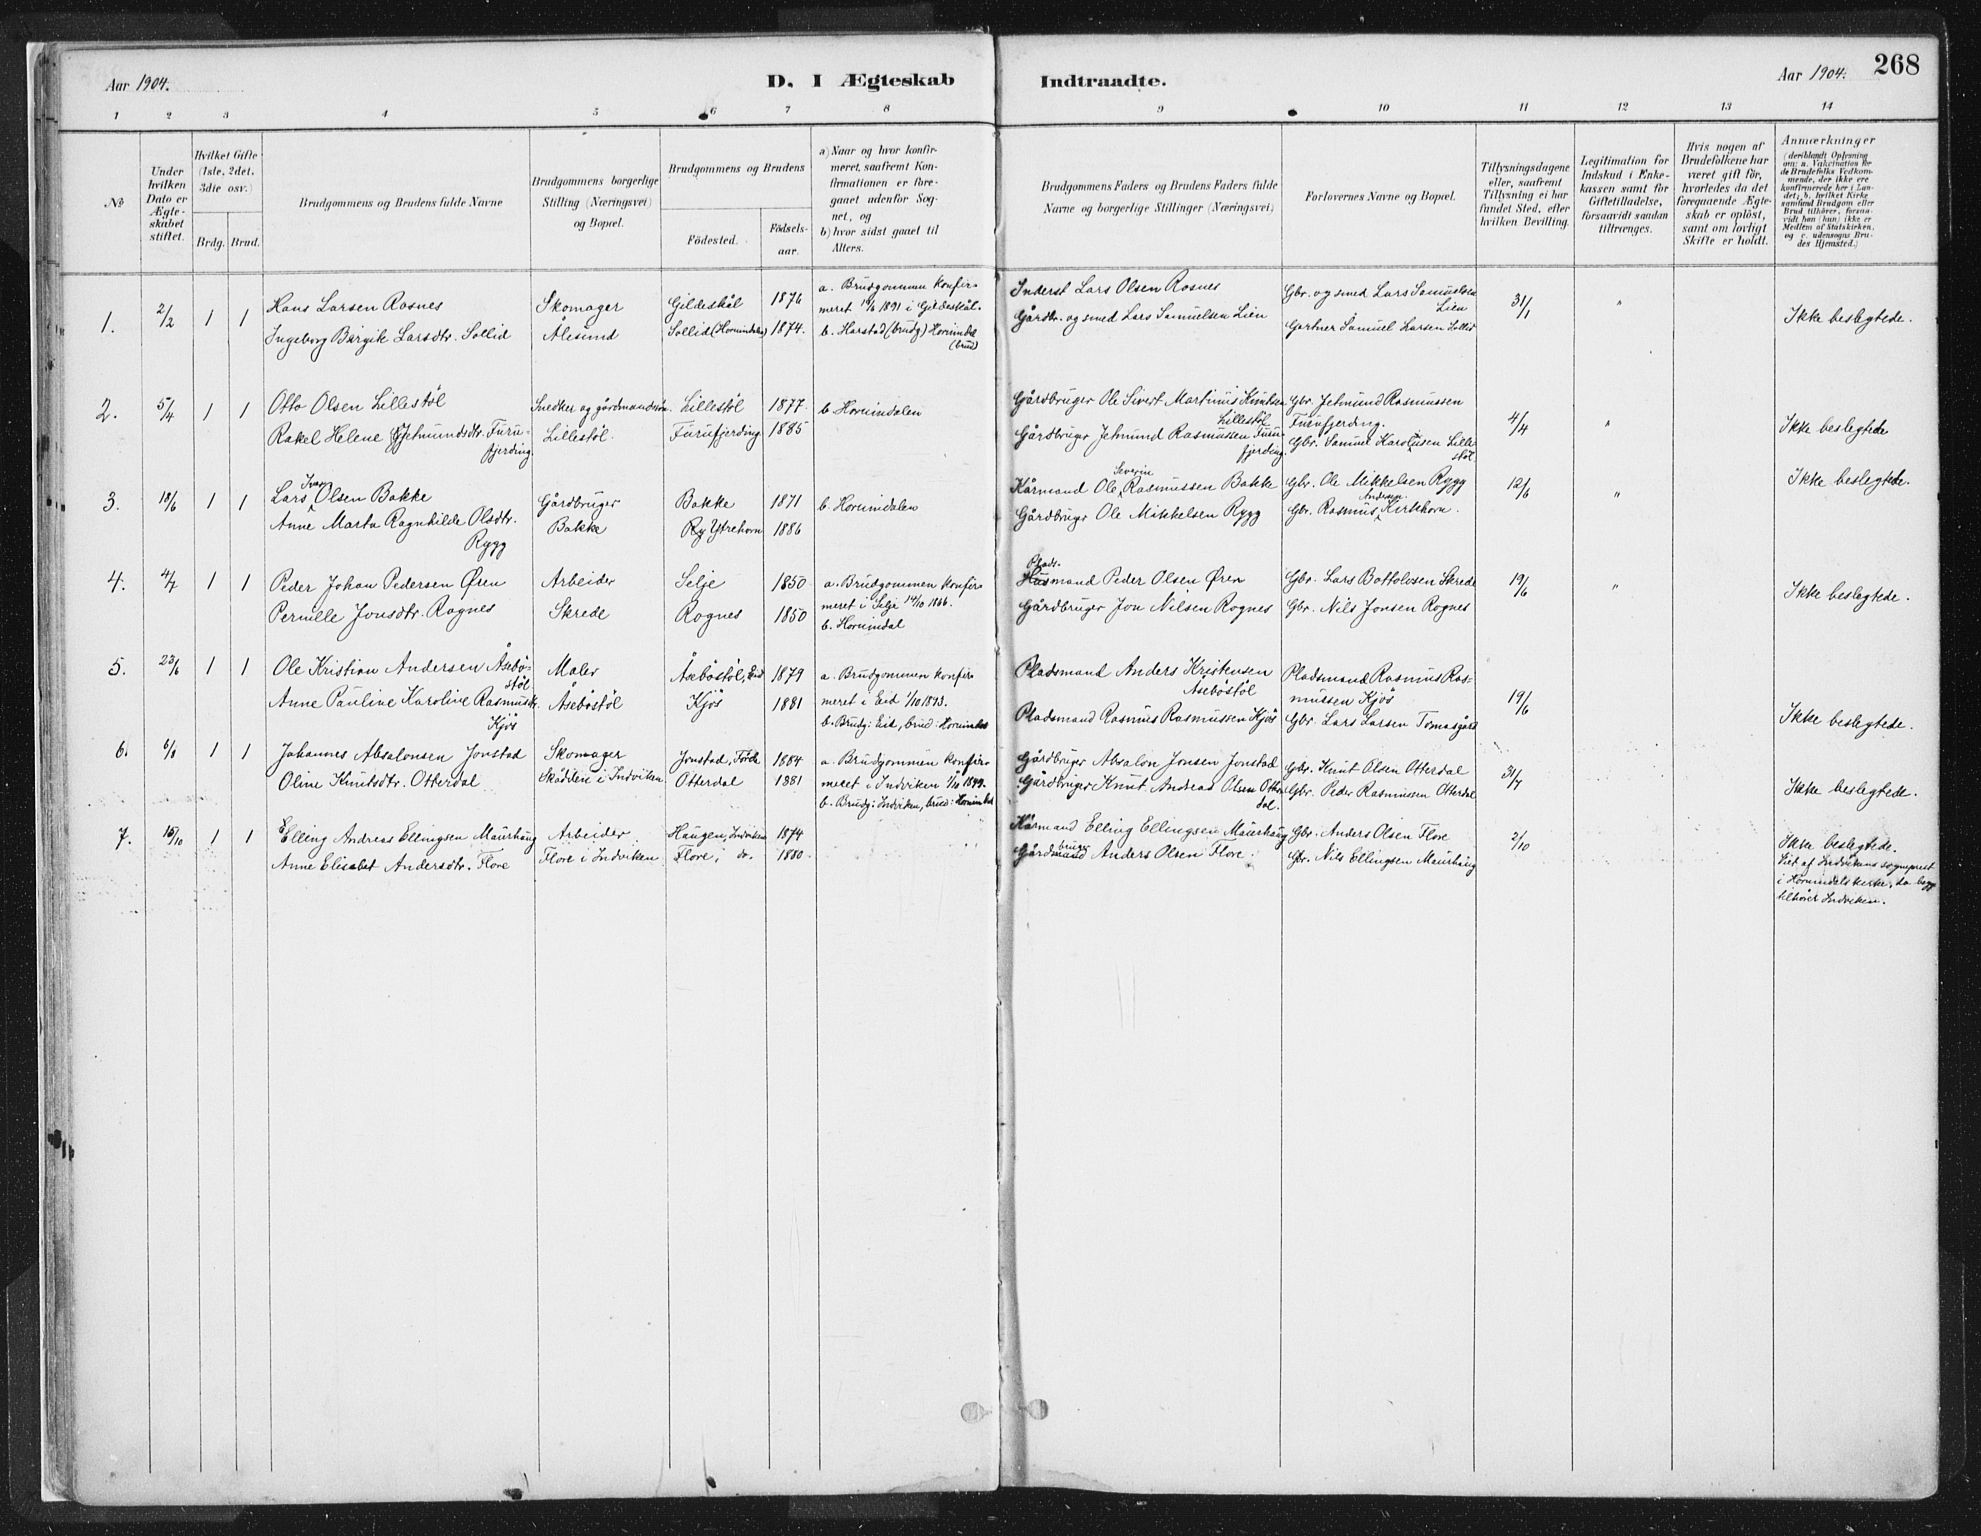 Aar 1904.
D. I Ægteskab Indtraadte.
Aar 1904. 268
1 2 3 4 5 6 7 8 9 10 11 12 13 14
№
Under hvilken Dato er Ægteskabet stiftet.
Hvilket Gifte (1ste, 2det, 3die osv.)
Brdg. Brud.
Brudgommens og Brudens fulde Navne
Brudgommens borgerlige Stilling (Næringsvei) og Bopæl.
Brudgommens og Brudens
Födested.
Födselsaar.
a) Naar og hvor konfirmeret, saafremt Konfirmationen er foregaaet udenfor Sognet, og
b) hvor sidst gaaet til Alters.
Brudgommens Faders og Brudens Faders fulde Navne og borgerlige Stillinger (Næringsvei)
Forlovernes Navne og Bopæl.
Tillysningsdagene eller, saafremt Tillysning ei har fundet Sted, efter hvilken Bevilling.
Legitimation for Indskud i Enkekassen samt for Giftetilladelse, forsaavidt saadan tiltrænges.
Hvis nogen af Brudefolkene har været gift för, hvorledes da det foregaaende Ægteskab er oplöst, samt om lovligt Skifte er holdt.
Anmærkninger
(deriblandt Oplysning om: a. Vakcination for de Brudefolks Vedkommende, der ikke ere konfirmerede her i Landet; b. hvilket Kirkesamfund Brudgom eller Brud tilhører, forsaavidt han (hun) ikke er Medlem af Statskirken, og c. udensogns Brudes Hjemsted.)
1. 2/2 1 1 Hans Larsen Rosnes Skomager Gildeskål 1876 a. Brudgommen konfirmeret 1891 i Gildeskål.
Ingeborg Birgit Larsdtr. Sollid Ålesund Sollid (Hornindalen) 1874. b. Harstad (brudg) Hornindal (brud)
Inderst Lars Olsen Rosnes Gbr. og smed Lars Samuelsen Lien 31/1 " Ikke beslegtede.
Gårdbr. og smed Lars Samuelsen Lien Gartner Samuel Larsen Sollid
2. 5/4 1 1 Otto Olsen Lillestöl Snedker og gårdmandssön. Lillestöl 1877. b. Hornindalen
Rakel Helene Jetmundsdtr. Furufjerding Lillestöl. Furufjerding 1885
Gårdbruger Ole Sivert Martinus Knutsen Lillestöl Gbr. Jetmund Rasmussen Furufjerding. 4/4 " Ikke beslegtede
Gårdbruger Jetmund Rasmussen Furufjerding. Gbr. Samuel Karolusen Lillestöl
3. 18/6 1 1 Lars Ivar Olsen Bakke Gårdbruger Bakke 1871 b. Hornindalen
Anne Marta Ragnhilde Olsdtr. Rygg Bakke Ry Ytrehorn 1886
Kårmand Ole Severin Rasmussen Bakke Gbr. Ole Mikkelsen Rygg 12/6 " Ikke beslegtede.
Gårdbruger Ole Mikkelsen Rygg Gbr. Rasmus Andersen Kirkhorn.
4. 4/7 1 1 Peder Johan Pedersen Øren Arbeider Selje 1850 a. Brudgommen konfirmeret i Selje 14/10 1866.
Pernille Jonsdtr. Rognes Skrede Rognes 1850 b. Hornindal
Pladsmand Peder Olsen Øren Gbr. Lars Bottolvsen Skrede 19/6 " Ikke beslegtede.
Gårdbruger Jon Nilsen Rognes Gbr. Nils Jonsen Rognes
5. 23/6 1 1 Ole Kristian Andersen Åseböstöl Maler Åseböstöl, Eid 1879 a. Brudgommen konfirmeret i Eid 1/10 1893.
Anne Pauline Karoline Rasmusdtr. Kjös Åseböstöl Kjös 1881 b. Brudg: Eid, brud: Hornindal
Pladsmand Anders Kristensen Åseböstöl Pladsmand Rasmus Rasmussen Kjös 19/6 Ikke beslegtede.
Pladsmand Rasmus Rasmussen Kjös Gbr. Lars Larsen Tomasgård
6. 6/8 1 1 Johannes Absalonsen Jonstad Skomager Jonstad, Förde 1884 a. Brudgommen konfirmeret i Indviken 1/10 1899.
Oline Knutsdtr. Otterdal Skådden i Indviken Otterdal 1881 b. Brudg: Indviken, brud: Hornindal
Gårdbruger Absalon Jonsen Jonstad Gbr. Knut Olsen Otterdal 31/7 Ikke beslegtede.
Gårdbruger Knut Andreas Olsen Otterdal. Gbr. Peder Rasmussen Otterdal
7. 15/10 1 1 Elling Andreas Ellingsen Maurhaug Arbeider Haugen, Indviken 1874
Anne Elisabet Andersdtr. Flore Flore i Indviken Flore, do. 1880
Kårmand Elling Ellingsen Maurhaug Gbr. Anders Olsen Flore 2/10 Ikke beslegtede.
Gårdbruger Anders Olsen Flore. Gbr. Nils Ellingsen Maurhaug
Viet af Indvikens sogneprest
i Hornindals kirke, da begge
tilhører Indviken.